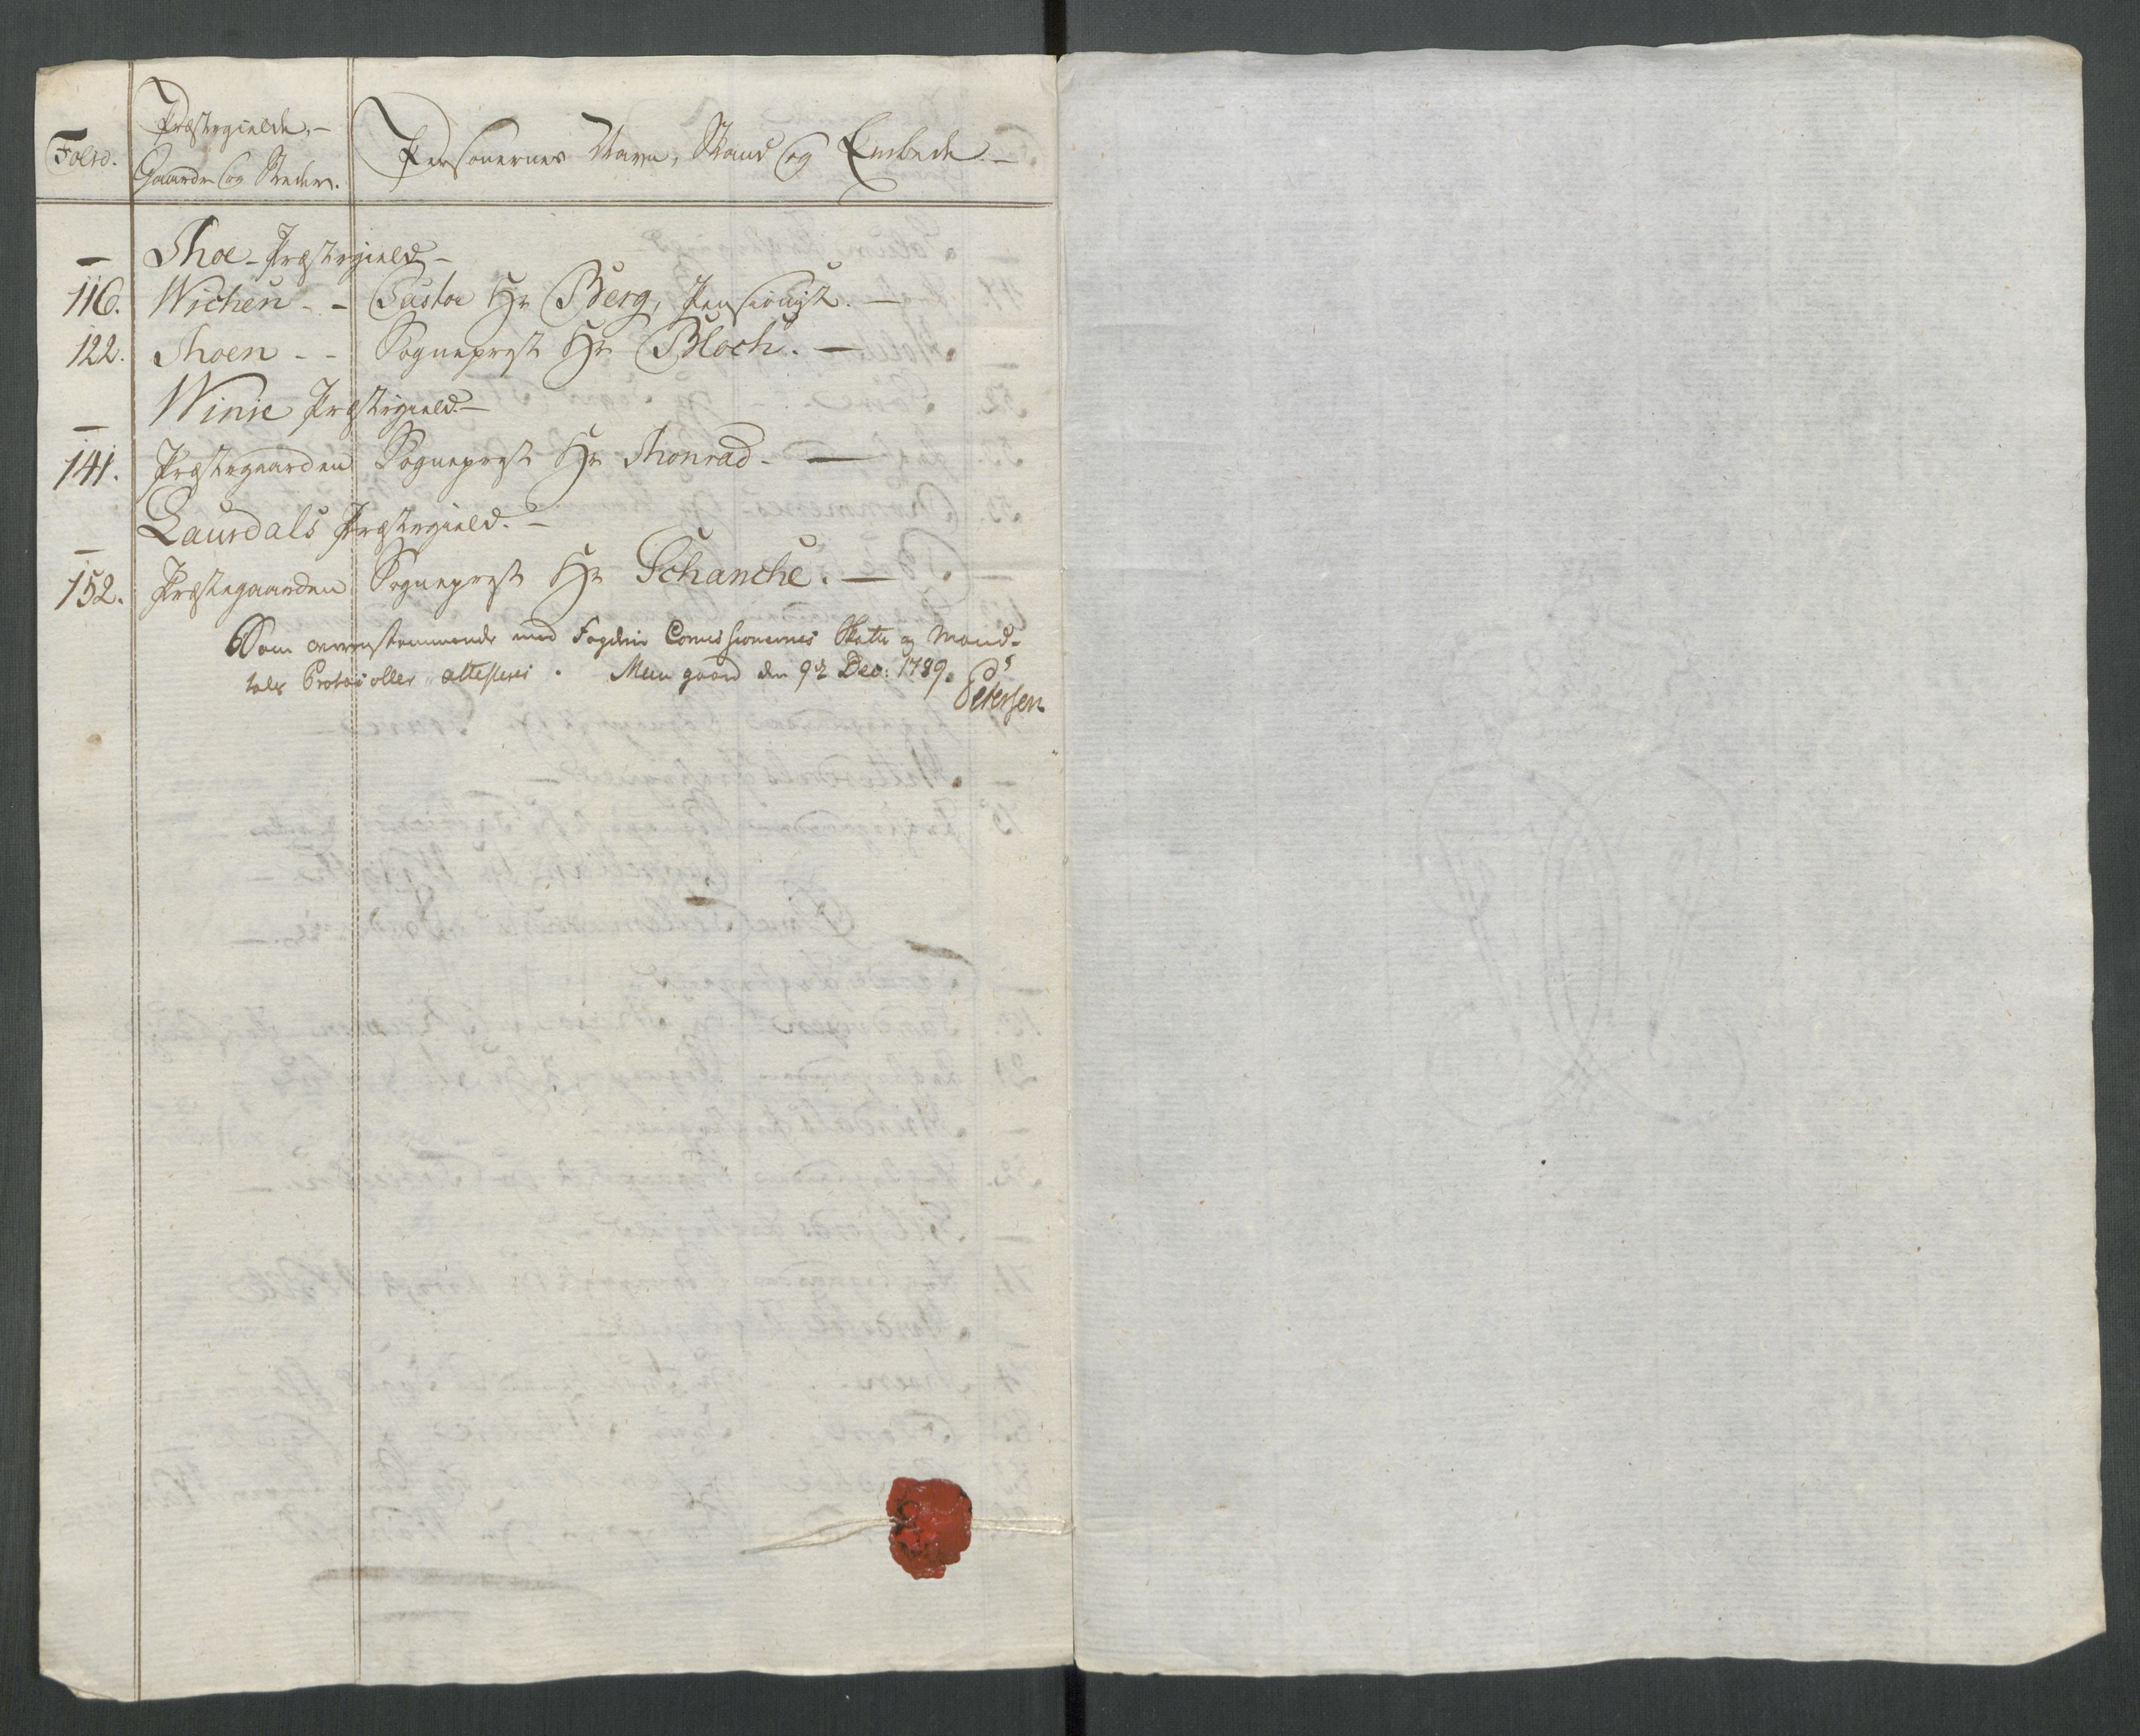 Folio.
Præstegielde, -
Gaarde og Stæder.
Personernes Navn, Stand og Embede. -
— Moe - Præstegield -
116. Wichen - - Pastor Hr Berg, Pensionist. —
122. Moen - - Sogneprest Hr Bloch. —
— Winie Præstegield. —
141. Præstegaarden Sogneprest Hr Monrad - —
— Laurdals Præstegield. -
152. Præstegaarden Sogneprest Hr Schanche. —
Som overenstemmende med Fogderie Comissionernes Skatte og Mand-
tals Protocoller attesteris. gaard den 9de Dec: 1789.
Petersen